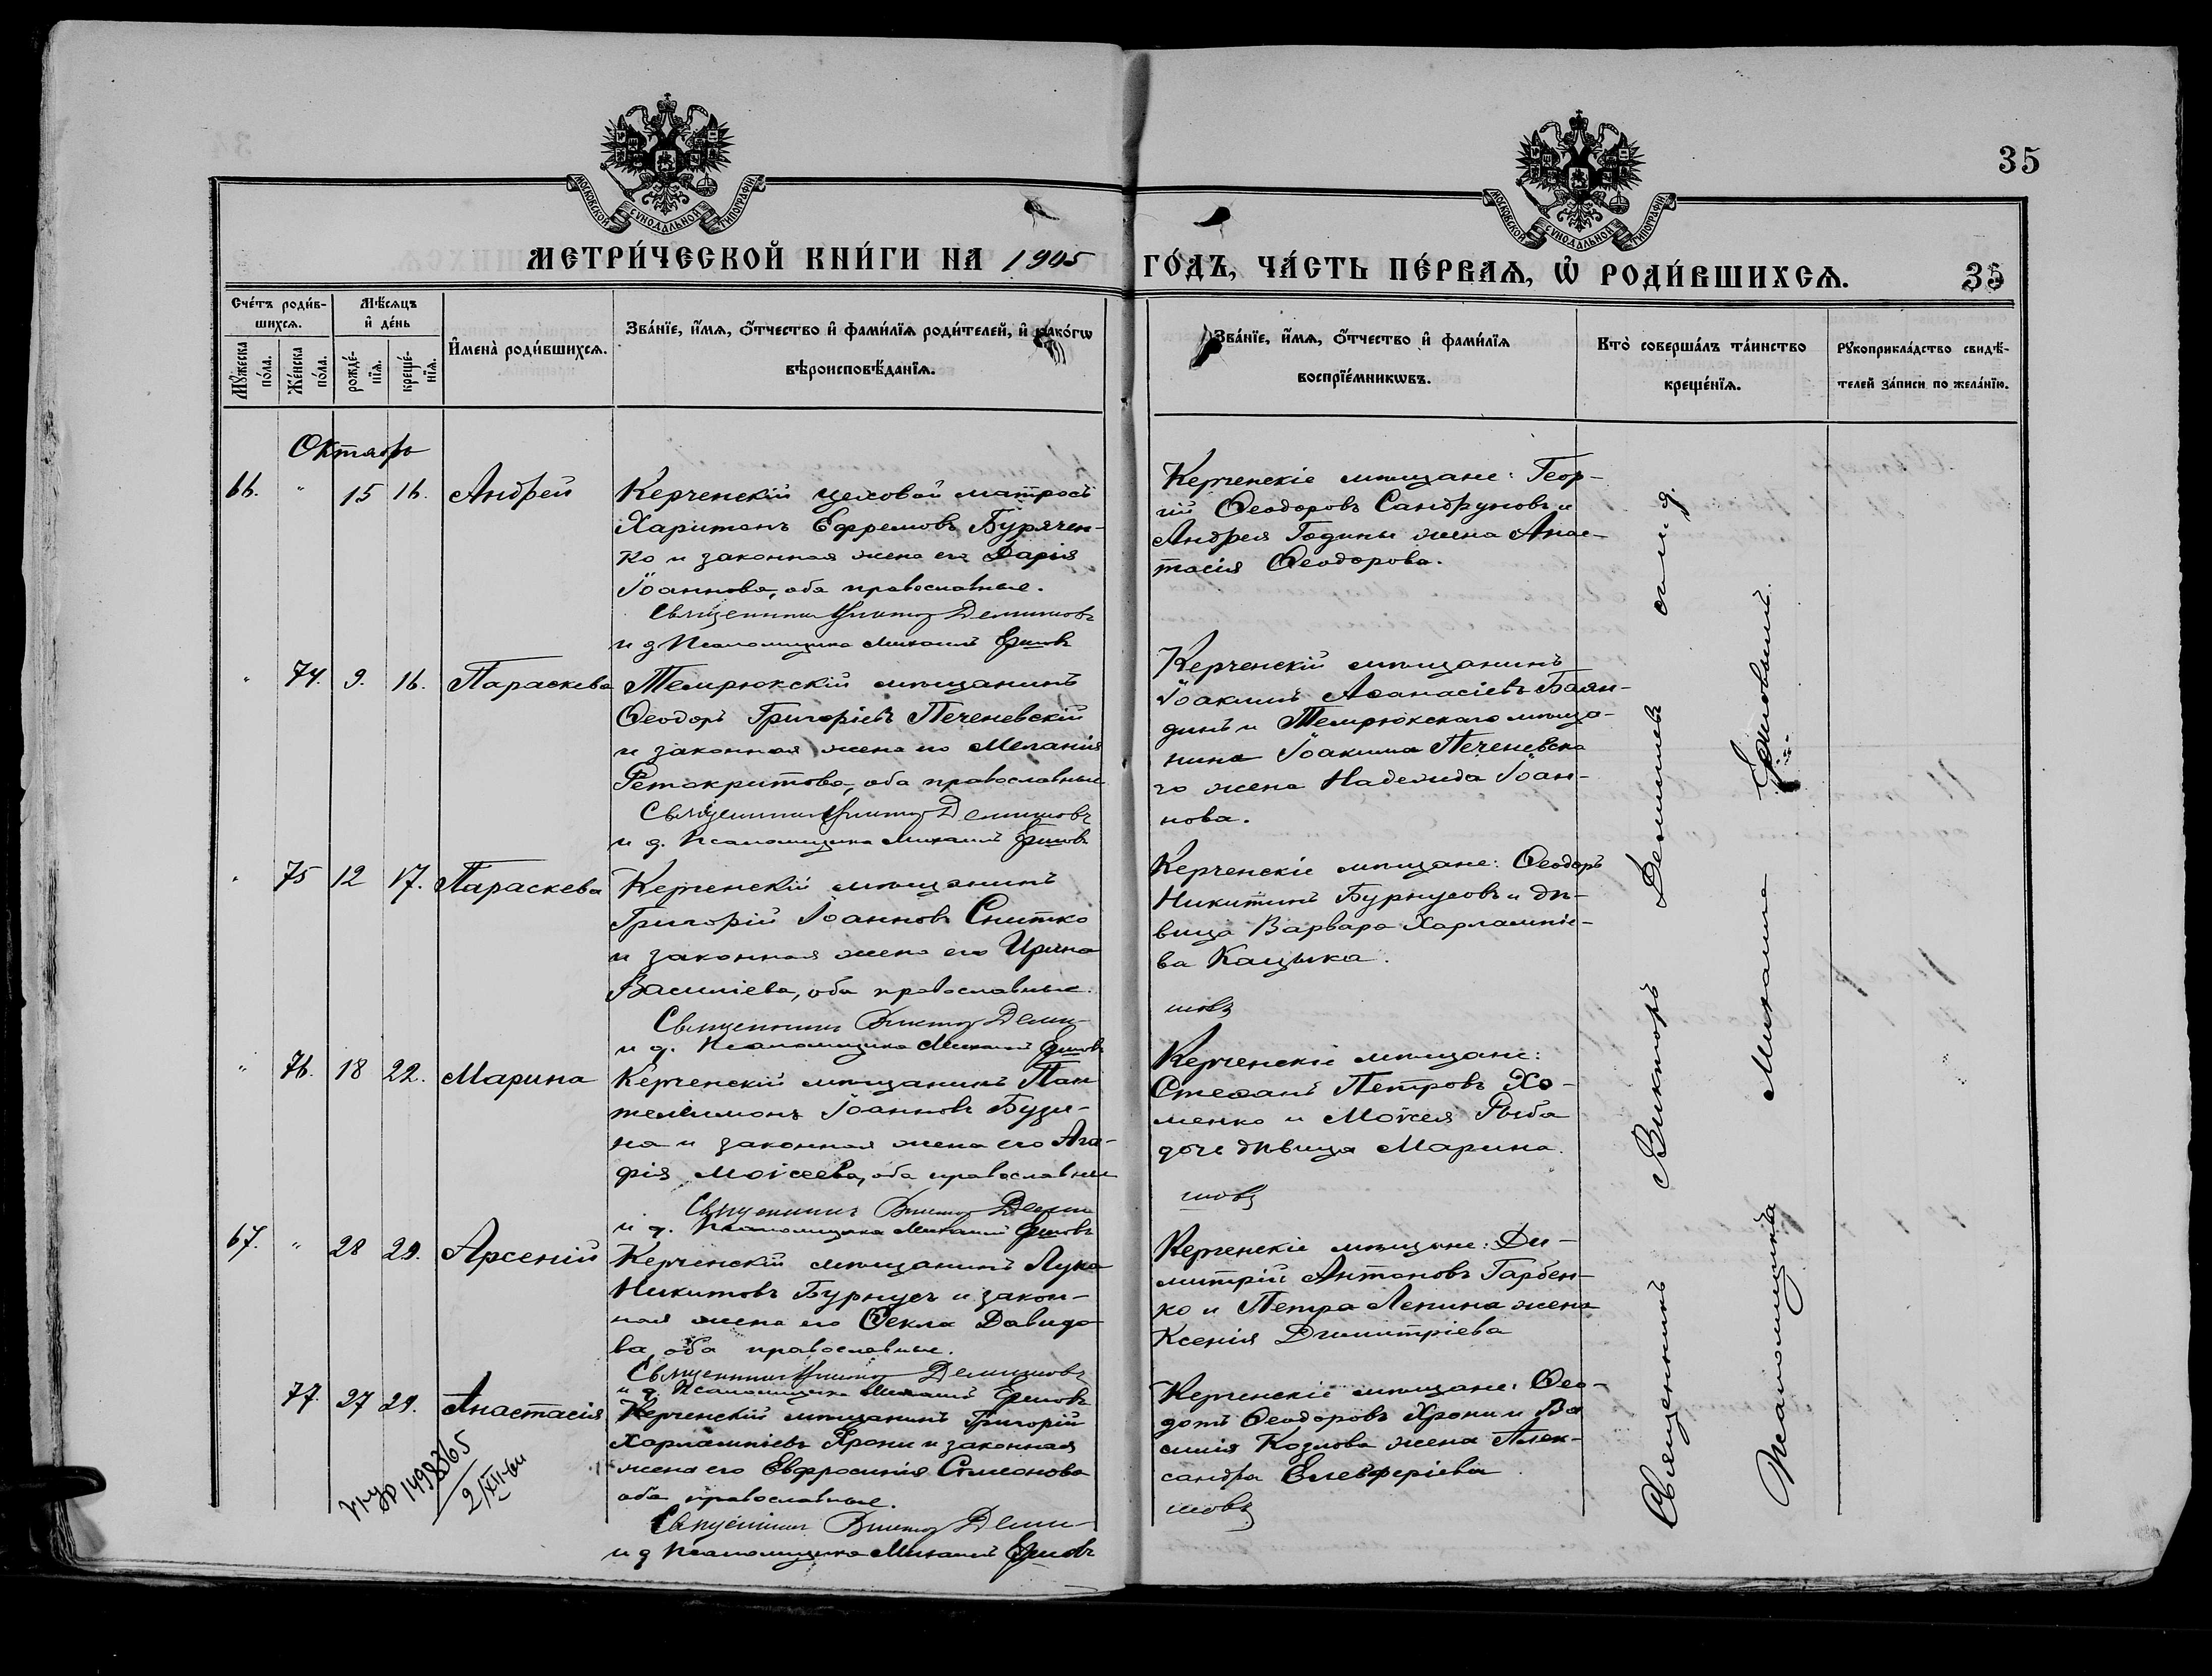 35
МОСКОВСКОЙ СУНОДАЛЬНОЙ ТИПОГРАФІИ
МОСКОВСКОЙ СУНОДАЛЬНОЙ ТИПОГРАФІИ
МЕТРИ́ЧЕСКОЙ КНИ́ГИ НА 1905
ГО́ДЪ, ЧА́СТЬ ПЕ́РВАЯ, Ѡ҆ РОДИ́ВШИХСЯ.
35
Сче́тъ роди́в-
шихся.
Мѣ́сяцъ
и҆ де́нь
Му́жеска по́ла.
Же́нска по́ла.
рожде́-
нїя.
креще́-
нїя.
И҆мена̀ роди́вшихся.
Зва́нїе, и҆́мя, ѻ҆́тчество и҆ фами́лїя роди́телей, и҆ како́гѡ
вѣроисповѣ́данїя.
Зва́нїе, и҆́мя, ѻ҆́тчество и҆ фами́лїя
воспрїе́мникѡвъ.
Кто̀ соверша́лъ та́инство
креще́нїя.
Рукоприкла́дство свидѣ́-
телей за́писи по жела́нїю.
Октябрь
66. " 15 16. Андрей
Керченскій цеховой матросъ
Харитонъ Ефремовъ Бурячен-
ко и законная жена его Дарія
Іоаннова, оба православные.
Священникъ Викторъ Демишовъ
и д Псаломщика Михаилъ
Керченскіе мѣщане: Геор-
гій Ѳеодоровъ Сандруновъ и
Андрея Годины жена Анас-
тасія Ѳеодорова.
" 74. 9. 16. Параскева
Темрюкскій мѣщанинъ
Ѳеодоръ Григоріевъ Печеневскій
и законная жена его Меланія
оба православные
Священникъ Викторъ Демишовъ
и д. Псаломщика Михаилъ
Керченскій мѣщанинъ
Іоакимъ Аѳанасіевъ Баян-
динъ и Темрюкскаго мѣща-
нина Іоакима Печеневска
го жена Надежда Іоан-
нова.
" 75 12 17. Параскева
Керченскій мѣщанинъ
Григорій Іоанновъ Снитко
и законная жена его Ирина
Василіева, оба православные.
Священникъ Викторъ Деми-
и д. Псаломщика Михаилъ
Керченскіе мѣщане: Ѳеодоръ
Никитинъ Бурнусовъ и дѣ-
вица Варвара Харлампіе-
ва Кацыка.
шовъ
" 76. 18 22. Марина
Керченскій мѣщанинъ Пан
телеимонъ Іоанновъ Бузи-
на и законная жена его Ага-
фія Моисеева, оба православные
Священникъ Викторъ Деми
и д. Псаломщика Михаилъ
Керченскіе мѣщане:
Стефанъ Петровъ Хо-
менко и Моисея Рыба
дочь дѣвица Марина.
шовъ
67. " 28 29. Арсеній
Керченскій мѣщанинъ Лука
Никитовъ Бурнусъ и закон-
ная жена его Ѳекла Давидо
ва, оба православные.
Священникъ Викторъ Демишовъ
и д. Псаломщика Михаилъ
Керченскіе мѣщане: Ди-
митрій Антоновъ Гарбен-
ко и Петра Лепина жена
Ксенія Димитріева
77. 27 29. Анастасія
Керченскій мѣщанинъ Григорій
Харлампіевъ Хрони и законная
жена его Евфросинія Симеонова
оба православные.
Священникъ Викторъ Деми-
и д Псаломщика Михаилъ
Керченскіе мѣщане: Ѳео-
дотъ Ѳеодоровъ Хрони и Ва
силія Козлова жена Алек-
сандра Елевферіева
шовъ
Священникъ Викторъ Демишовъ
Псаломщика Михаилъ
1498365
2/XII-